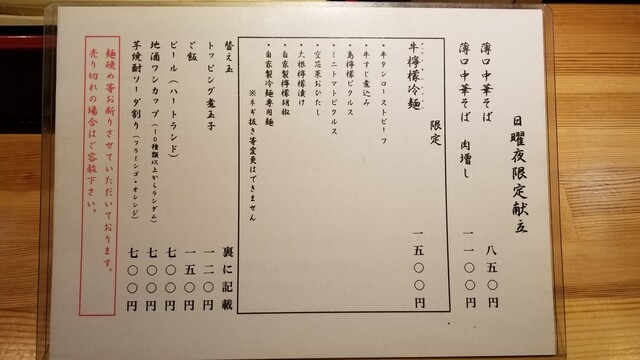 日曜夜限定献立
薄口中華そば 八五〇円
薄口中華そば 肉増し 一一〇〇円
限定
牛檸檬冷麺 一五〇〇円
・牛タンローストビーフ
・牛すじ煮込み
・島檸檬ピクルス
・ミニトマトピクルス
・空芯菜おひたし
・大根檸檬漬け
・自家製檸檬胡椒
・自家製冷麺専用麺
※ネギ抜き等変更はできません
替え玉 裏に記載
トッピング煮玉子 一二〇円
ご飯 一五〇円
ビール（ハートランド） 七〇〇円
地酒ワンカップ（10種類以上からランダム） 七〇〇円
芋焼酎ソーダ割り（フラミンゴ・オレンジ） 七〇〇円
麺硬め等お断りさせていただいております。
売り切れの場合はご容赦下さい。